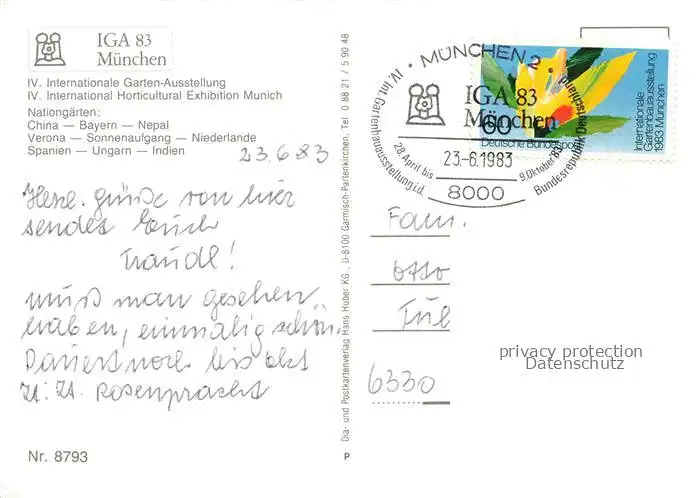 IGA 83
München
IV. Internationale Garten-Ausstellung
IV. International Horticultural Exhibition Munich
Nationgärten:
China — Bayern — Nepal
Verona — Sonnenaufgang — Niederlande
Spanien — Ungarn — Indien
23.6.83
Herzl. grüße von hier
sendet Euch
Traudl!
muß man gesehen
haben, einmalig schön.
Dauert noch bis okt
Zt. Rosenpracht
Nr. 8793
Dia- und Postkartenverlag Hans Huber KG., Ü-8100 Garmisch-Partenkirchen, Tel. 0 88 21 / 5 90 48
P
MÜNCHEN 2
IV. Int. Gartenbauausstellung i.d. Bundesrepublik Deutschland
IGA 83
München
28. April bis 9. Oktober '83
23.-6.1983
8000
60
Deutsche Bundespost
Internationale
Gartenbauausstellung
1983 München
Fam.
Otto
6330
privacy protection
Datenschutz